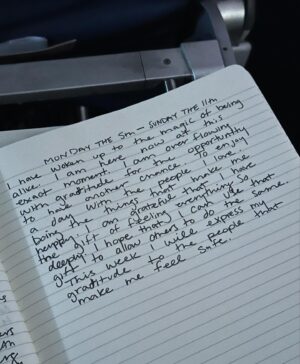 MONDAY THE 5TH – SUNDAY THE 11th
I have woken up to the magic of being
alive. I am here now at this
exact moment. I am overflowing
with gratitude for the opportunity
to have another chance to enjoy
a day with the people I love
doing things that make me
happy. I am grateful that I have
the gift of feeling everything so
deeply. I hope that I can use that
gift to allow others to do the same.
This week I will express my
gratitude to the people that
make me feel safe.